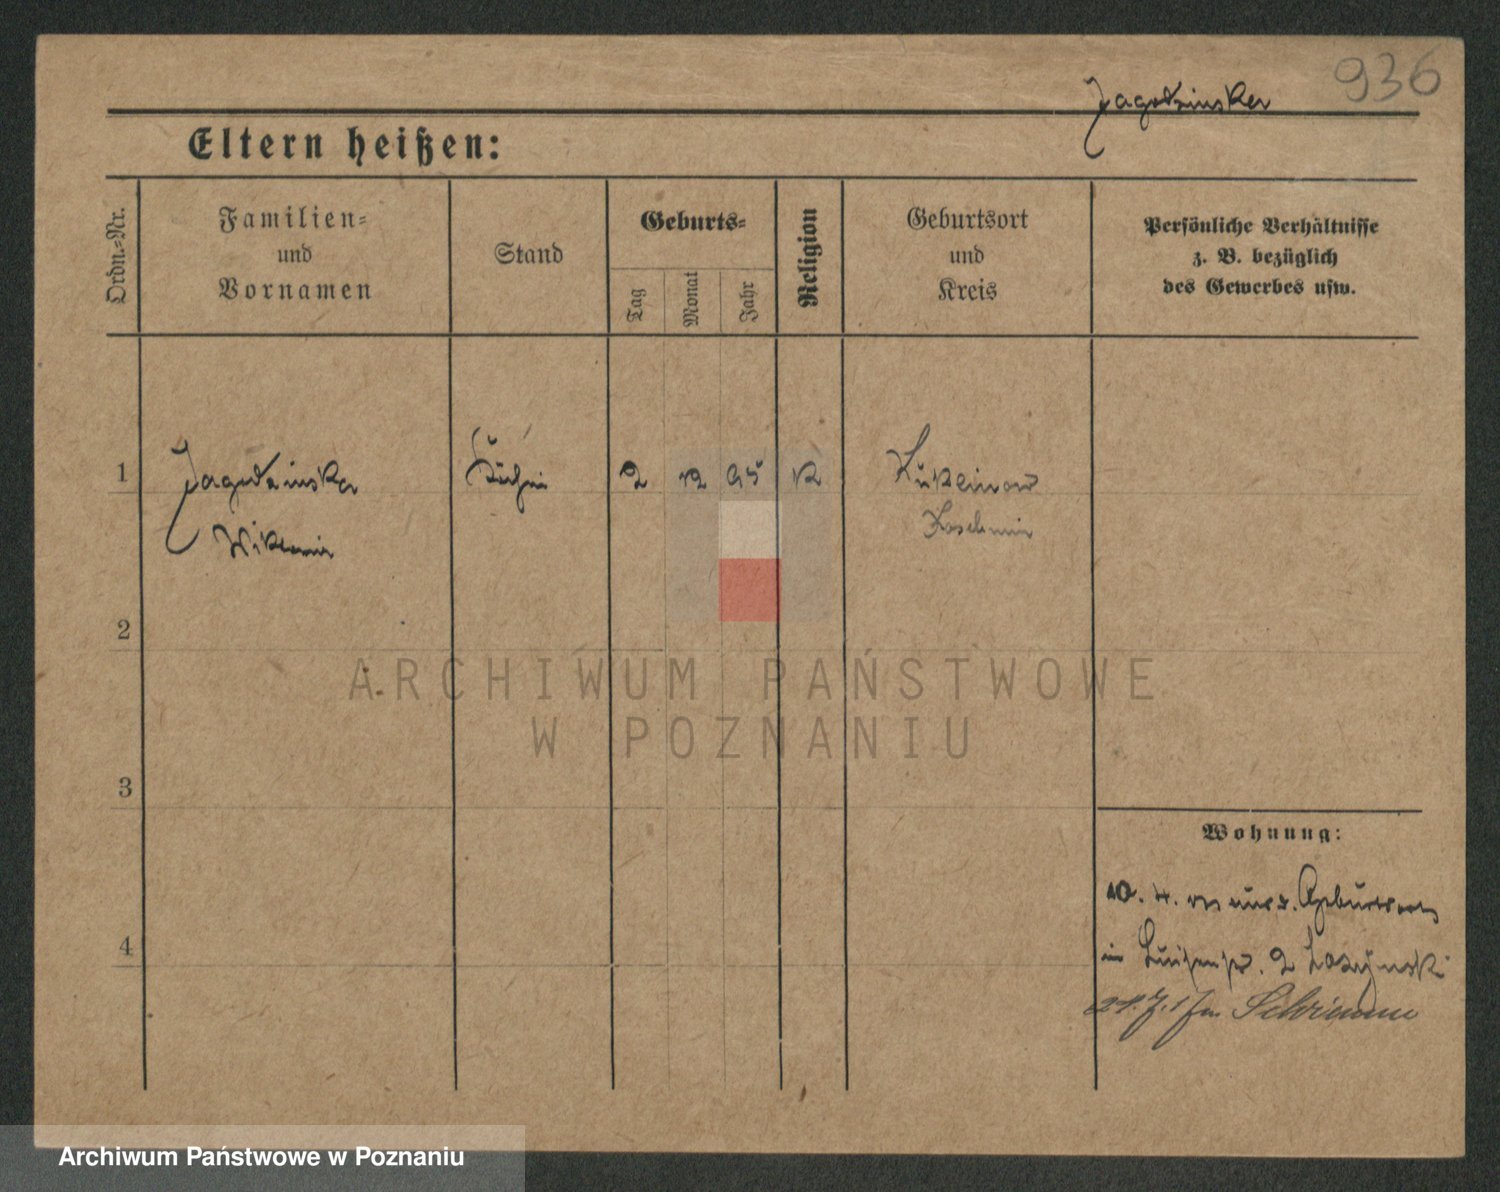 936
Jagodzinska
Eltern heißen:
Ordn.-Nr.
Familien-
und
Vornamen
Stand
Geburts-
Tag
Monat
Jahr
Religion
Geburtsort
und
Kreis
Persönliche Verhältnisse
z. B. bezüglich
des Gewerbes usw.
1
Jagodzinska
2 12 95 K
Lukeinow
Koschmin
2
ARCHIWUM PAŃSTWOWE
W POZNANIU
3
Wohnung:
10. 4. Geburtsort
4
in Luisenstr. 2
Schrimm
Archiwum Państwowe w Poznaniu